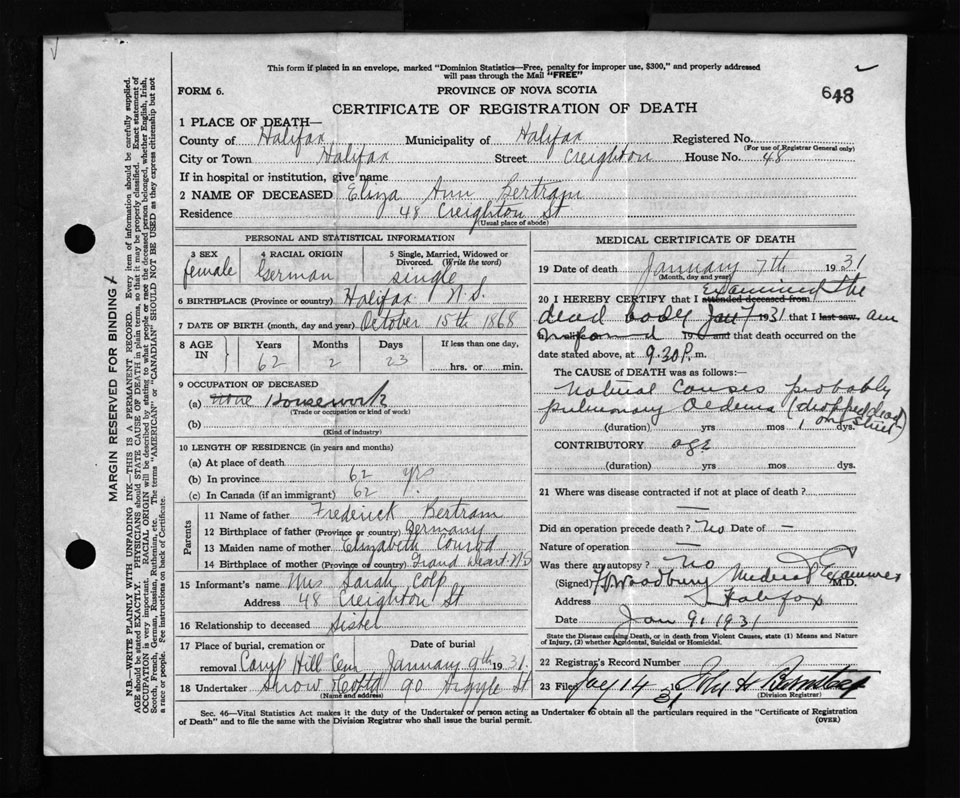 This form if placed in an envelope, marked "Dominion Statistics—Free, penalty for improper use, $300," and properly addressed
will pass through the Mail "FREE"
FORM 6.
PROVINCE OF NOVA SCOTIA
648
CERTIFICATE OF REGISTRATION OF DEATH
1 PLACE OF DEATH—
County of Halifax Municipality of Halifax Registered No.
(For use of Registrar General only)
City or Town Halifax Street Creighton House No. 48
If in hospital or institution, give name
2 NAME OF DECEASED Eliza Ann Bertram
Residence 48 Creighton St
(Usual place of abode)
PERSONAL AND STATISTICAL INFORMATION
3 SEX 4 RACIAL ORIGIN 5 Single, Married, Widowed or Divorced. (Write the word)
female German single
6 BIRTHPLACE (Province or country) Halifax N.S.
7 DATE OF BIRTH (month, day and year) October 15th 1868
8 AGE IN Years Months Days If less than one day,
62 2 23 hrs. or min.
9 OCCUPATION OF DECEASED
(a) none Housework
(Trade or occupation or kind of work)
(b)
(Kind of industry)
10 LENGTH OF RESIDENCE (in years and months)
(a) At place of death
(b) In province 62 yrs
(c) In Canada (if an immigrant) 62
Parents
11 Name of father Frederick Bertram
12 Birthplace of father (Province or country) Germany
13 Maiden name of mother Elizabeth Conrod
14 Birthplace of mother (Province or country) Grand Desert N S
15 Informant's name Mrs Sarah Colp
Address 48 Creighton St
16 Relationship to deceased Sister
17 Place of burial, cremation or Date of burial
removal Camp Hill Cem January 9th 1931.
18 Undertaker Snow 90 Argyle St
(Name and address)
MEDICAL CERTIFICATE OF DEATH
19 Date of death January 7th 1931
(Month, day and year)
20 I HEREBY CERTIFY that I attended deceased from Examined the
dead body Jan 7 1931 that I last saw am
h 19 and that death occurred on the
date stated above, at 9.30 P. m.
The CAUSE of DEATH was as follows:—
Natural Causes probably
pulmonary Oedema (dropped dead
on street)
(duration) yrs mos 1 dys.
CONTRIBUTORY age
(duration) yrs mos dys.
21 Where was disease contracted if not at place of death?
—
Did an operation precede death? No Date of —
Nature of operation —
Was there an autopsy? No
(Signed) Woodbury Medical Examiner M.D.
Address Halifax
Date Jan 9. 1931
State the Disease causing Death, or in death from Violent Causes, state (1) Means and Nature
of Injury, (2) whether Accidental, Suicidal or Homicidal.
22 Registrar's Record Number
23 Filed Jan 14 31 John H
(Division Registrar)
Sec. 46—Vital Statistics Act makes it the duty of the Undertaker or person acting as Undertaker to obtain all the particulars required in the "Certificate of Registration
of Death" and to file the same with the Division Registrar who shall issue the burial permit.
(OVER)
MARGIN RESERVED FOR BINDING
N.B.—WRITE PLAINLY WITH UNFADING INK—THIS IS A PERMANENT RECORD. Every item of information should be carefully supplied.
AGE should be stated EXACTLY. PHYSICIANS should STATE CAUSE OF DEATH in plain terms, so that it may be properly classified. Exact statement of
OCCUPATION is very important. RACIAL ORIGIN will be described by stating to what people or race the deceased person belonged, whether English, Irish,
Scotch, French, German, Russian, Ruthenian, etc. The terms "AMERICAN" or "CANADIAN" SHOULD NOT BE USED as they express citizenship but not
a race or people. See instructions on back of Certificate.